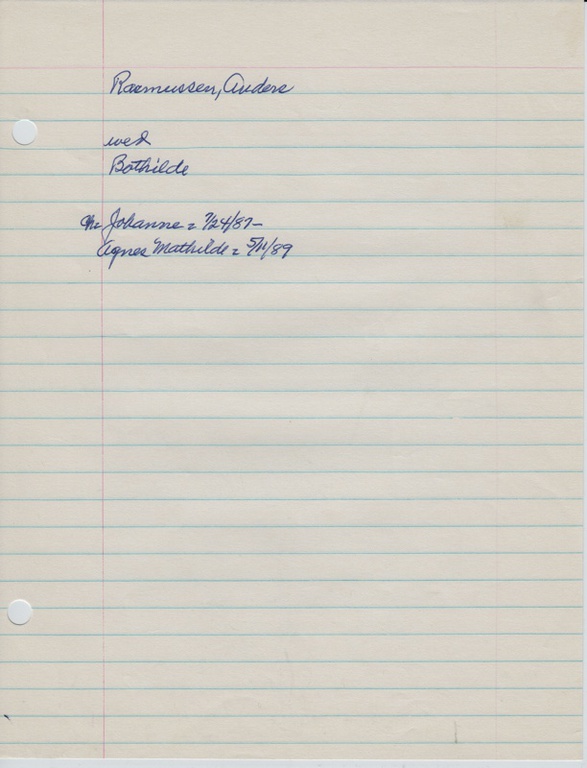 Rasmussen, Anders
wed
Bothilde
Ch: Johanne = 7/24/87-
Agnes Mathilde = 5/11/89